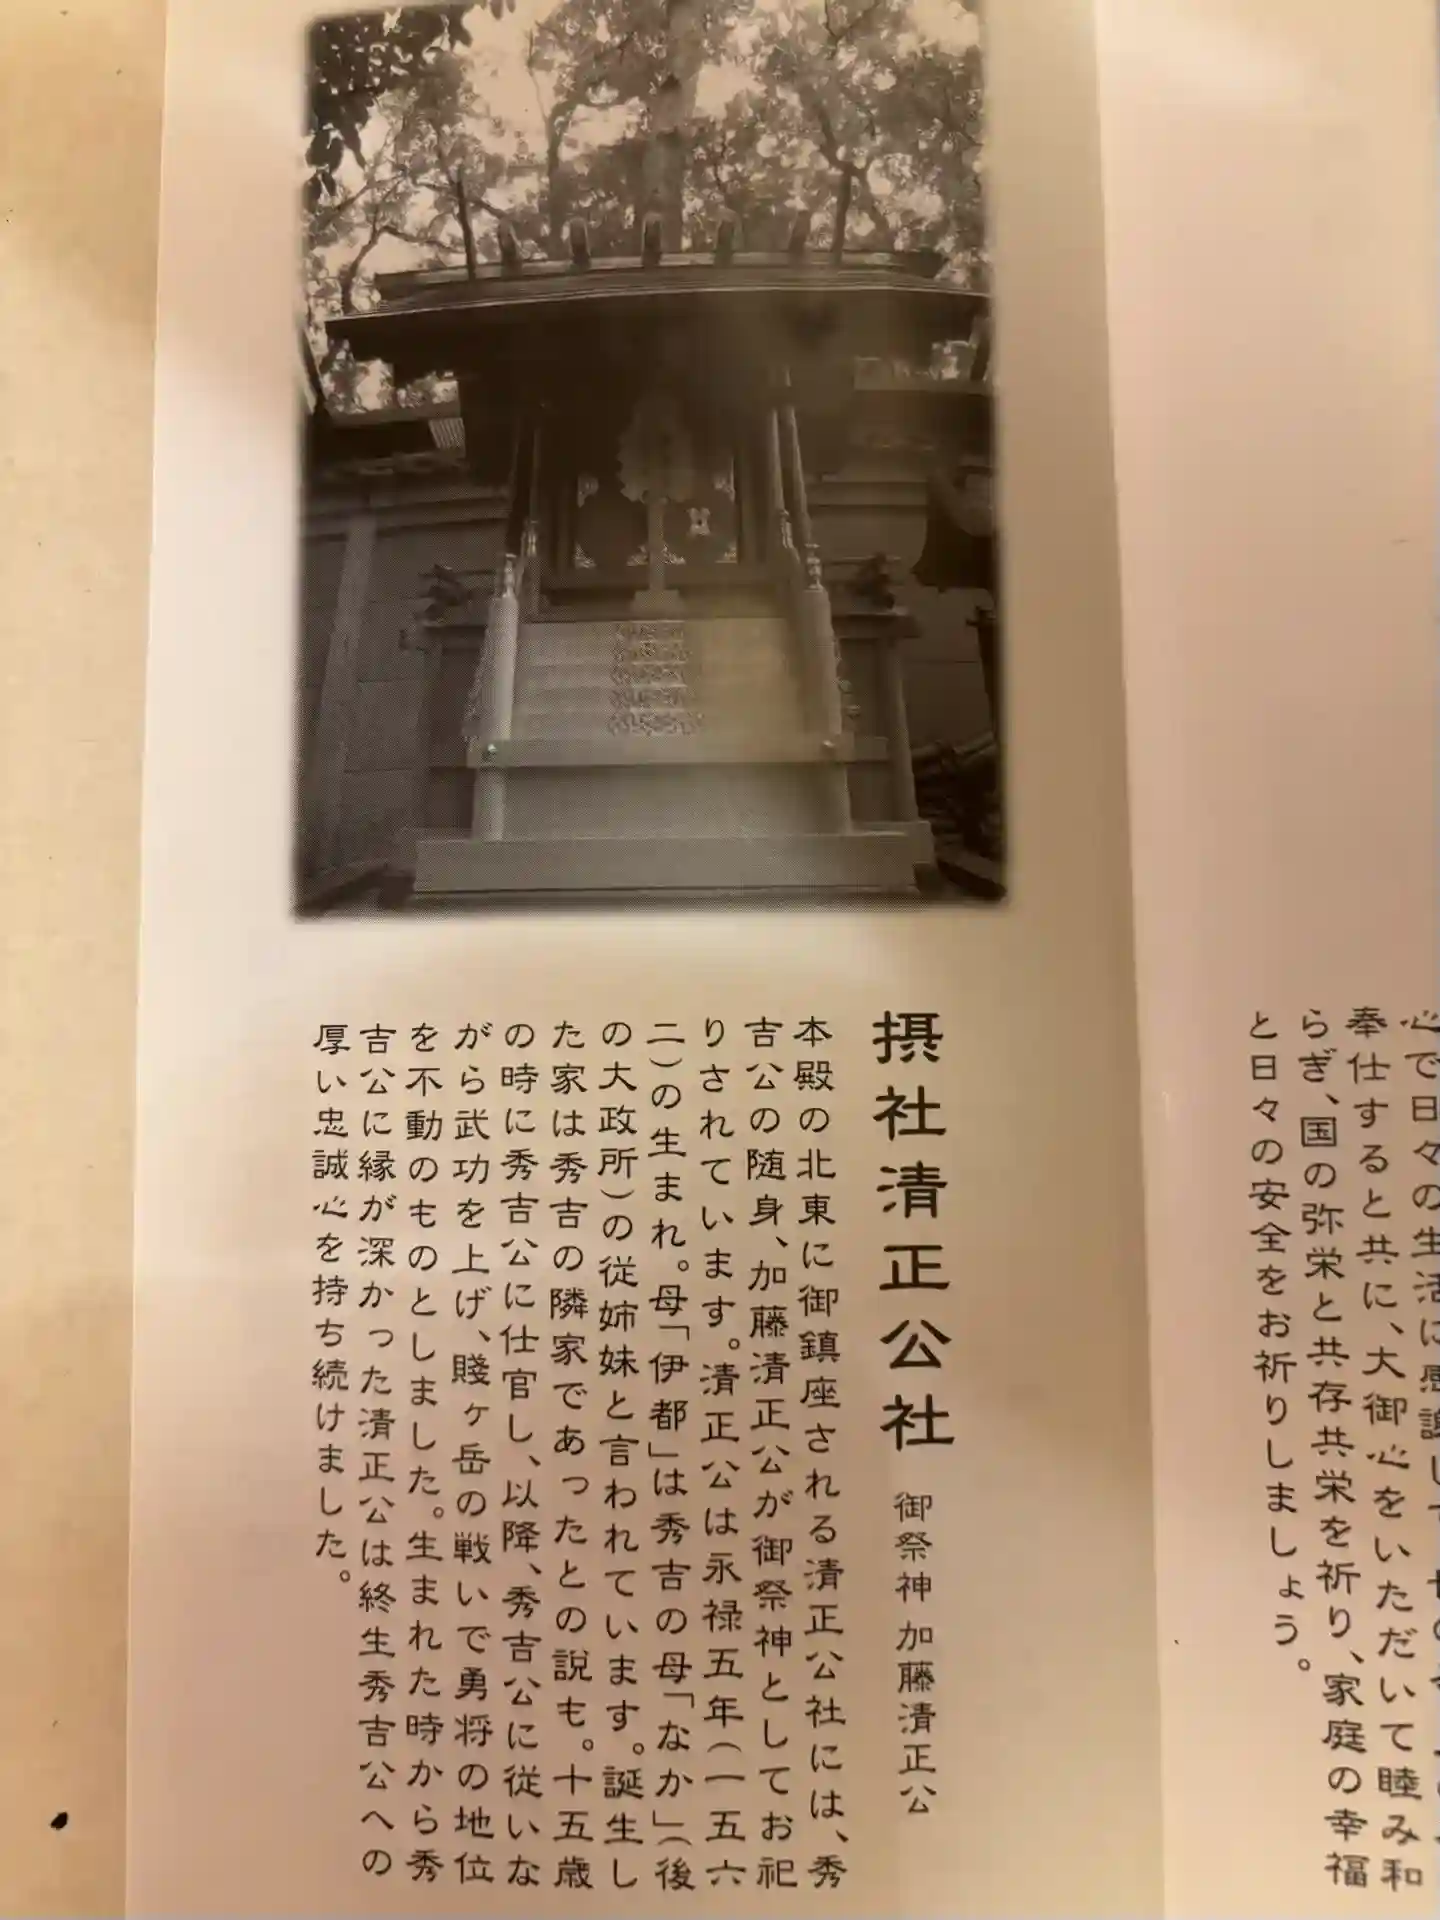 心で日々の生活に感謝し
奉仕すると共に、大御心をいただいて睦み和
らぎ、国の弥栄と共存共栄を祈り、家庭の幸福
と日々の安全をお祈りしましょう。
摂社清正公社 御祭神 加藤清正公
本殿の北東に御鎮座される清正公社には、秀
吉公の随身、加藤清正公が御祭神としてお祀
りされています。清正公は永禄五年(一五六
二)の生まれ。母「伊都」は秀吉の母「なか」(後
の大政所)の従姉妹と言われています。誕生し
た家は秀吉の隣家であったとの説も。十五歳
の時に秀吉公に仕官し、以降、秀吉公に従いな
がら武功を上げ、賤ヶ岳の戦いで勇将の地位
を不動のものとしました。生まれた時から秀
吉公に縁が深かった清正公は終生秀吉公への
厚い忠誠心を持ち続けました。